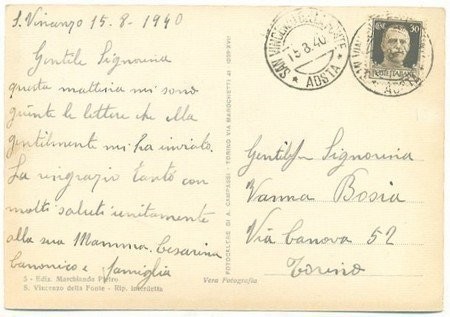 S. Vincenzo 15-8-1940
Gentile Signorina
questa mattina mi sono
giunte le lettere che ella
gentilmente mi ha inviato.
La ringrazio tanto con
molti saluti unitamente
alla sua Mamma. Cesarina
Canonico e famiglia
5 - Ediz. Marchiando Pietro
S. Vincenzo della Fonte - Rip. Interdetta
Vera Fotografia
FOTOCELERE DI A. CAMPASSI - TORINO VIA MAROCHETTI
SAN VINCENZO DELLA FONTE
15.8.40
* AOSTA *
50
POSTE ITALIANE
AOSTA
Signorina
Vanna Bosia
Via Canova 52
Torino